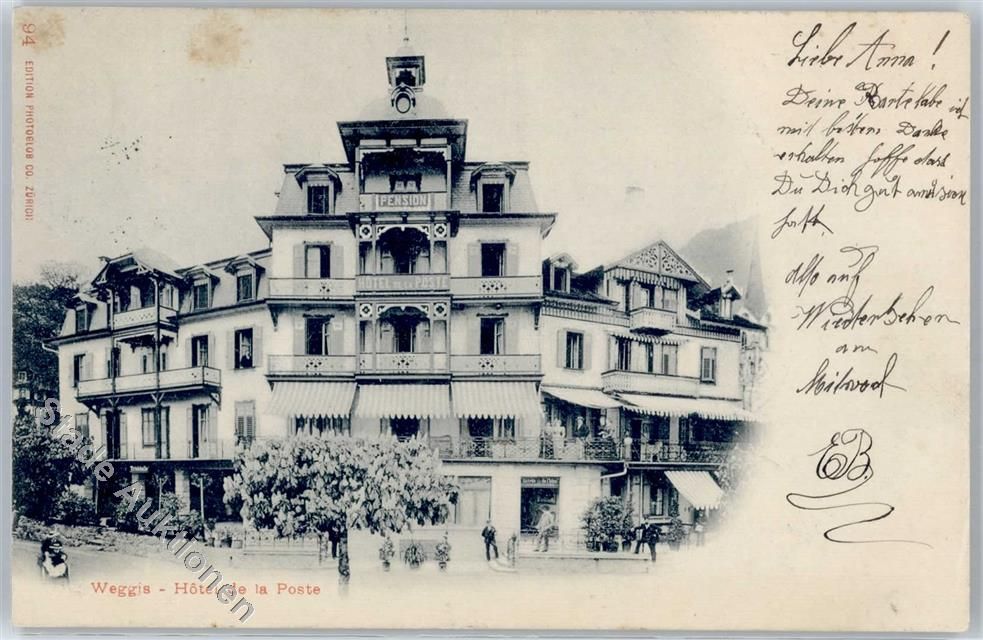 94 EDITION PHOTOGLOB CO. ZÜRICH
PENSION
HÔTEL DE LA POST
Liebe Anna!
Deine Karte habe ich
mit bestem Danke
erhalten hoffe dass
Du Dich gut amüsirn
hast.
Also auf
Wiedersehen
am
Mitwoch
EB.
Weggis - Hôtel de la Poste
Stade Auktionen